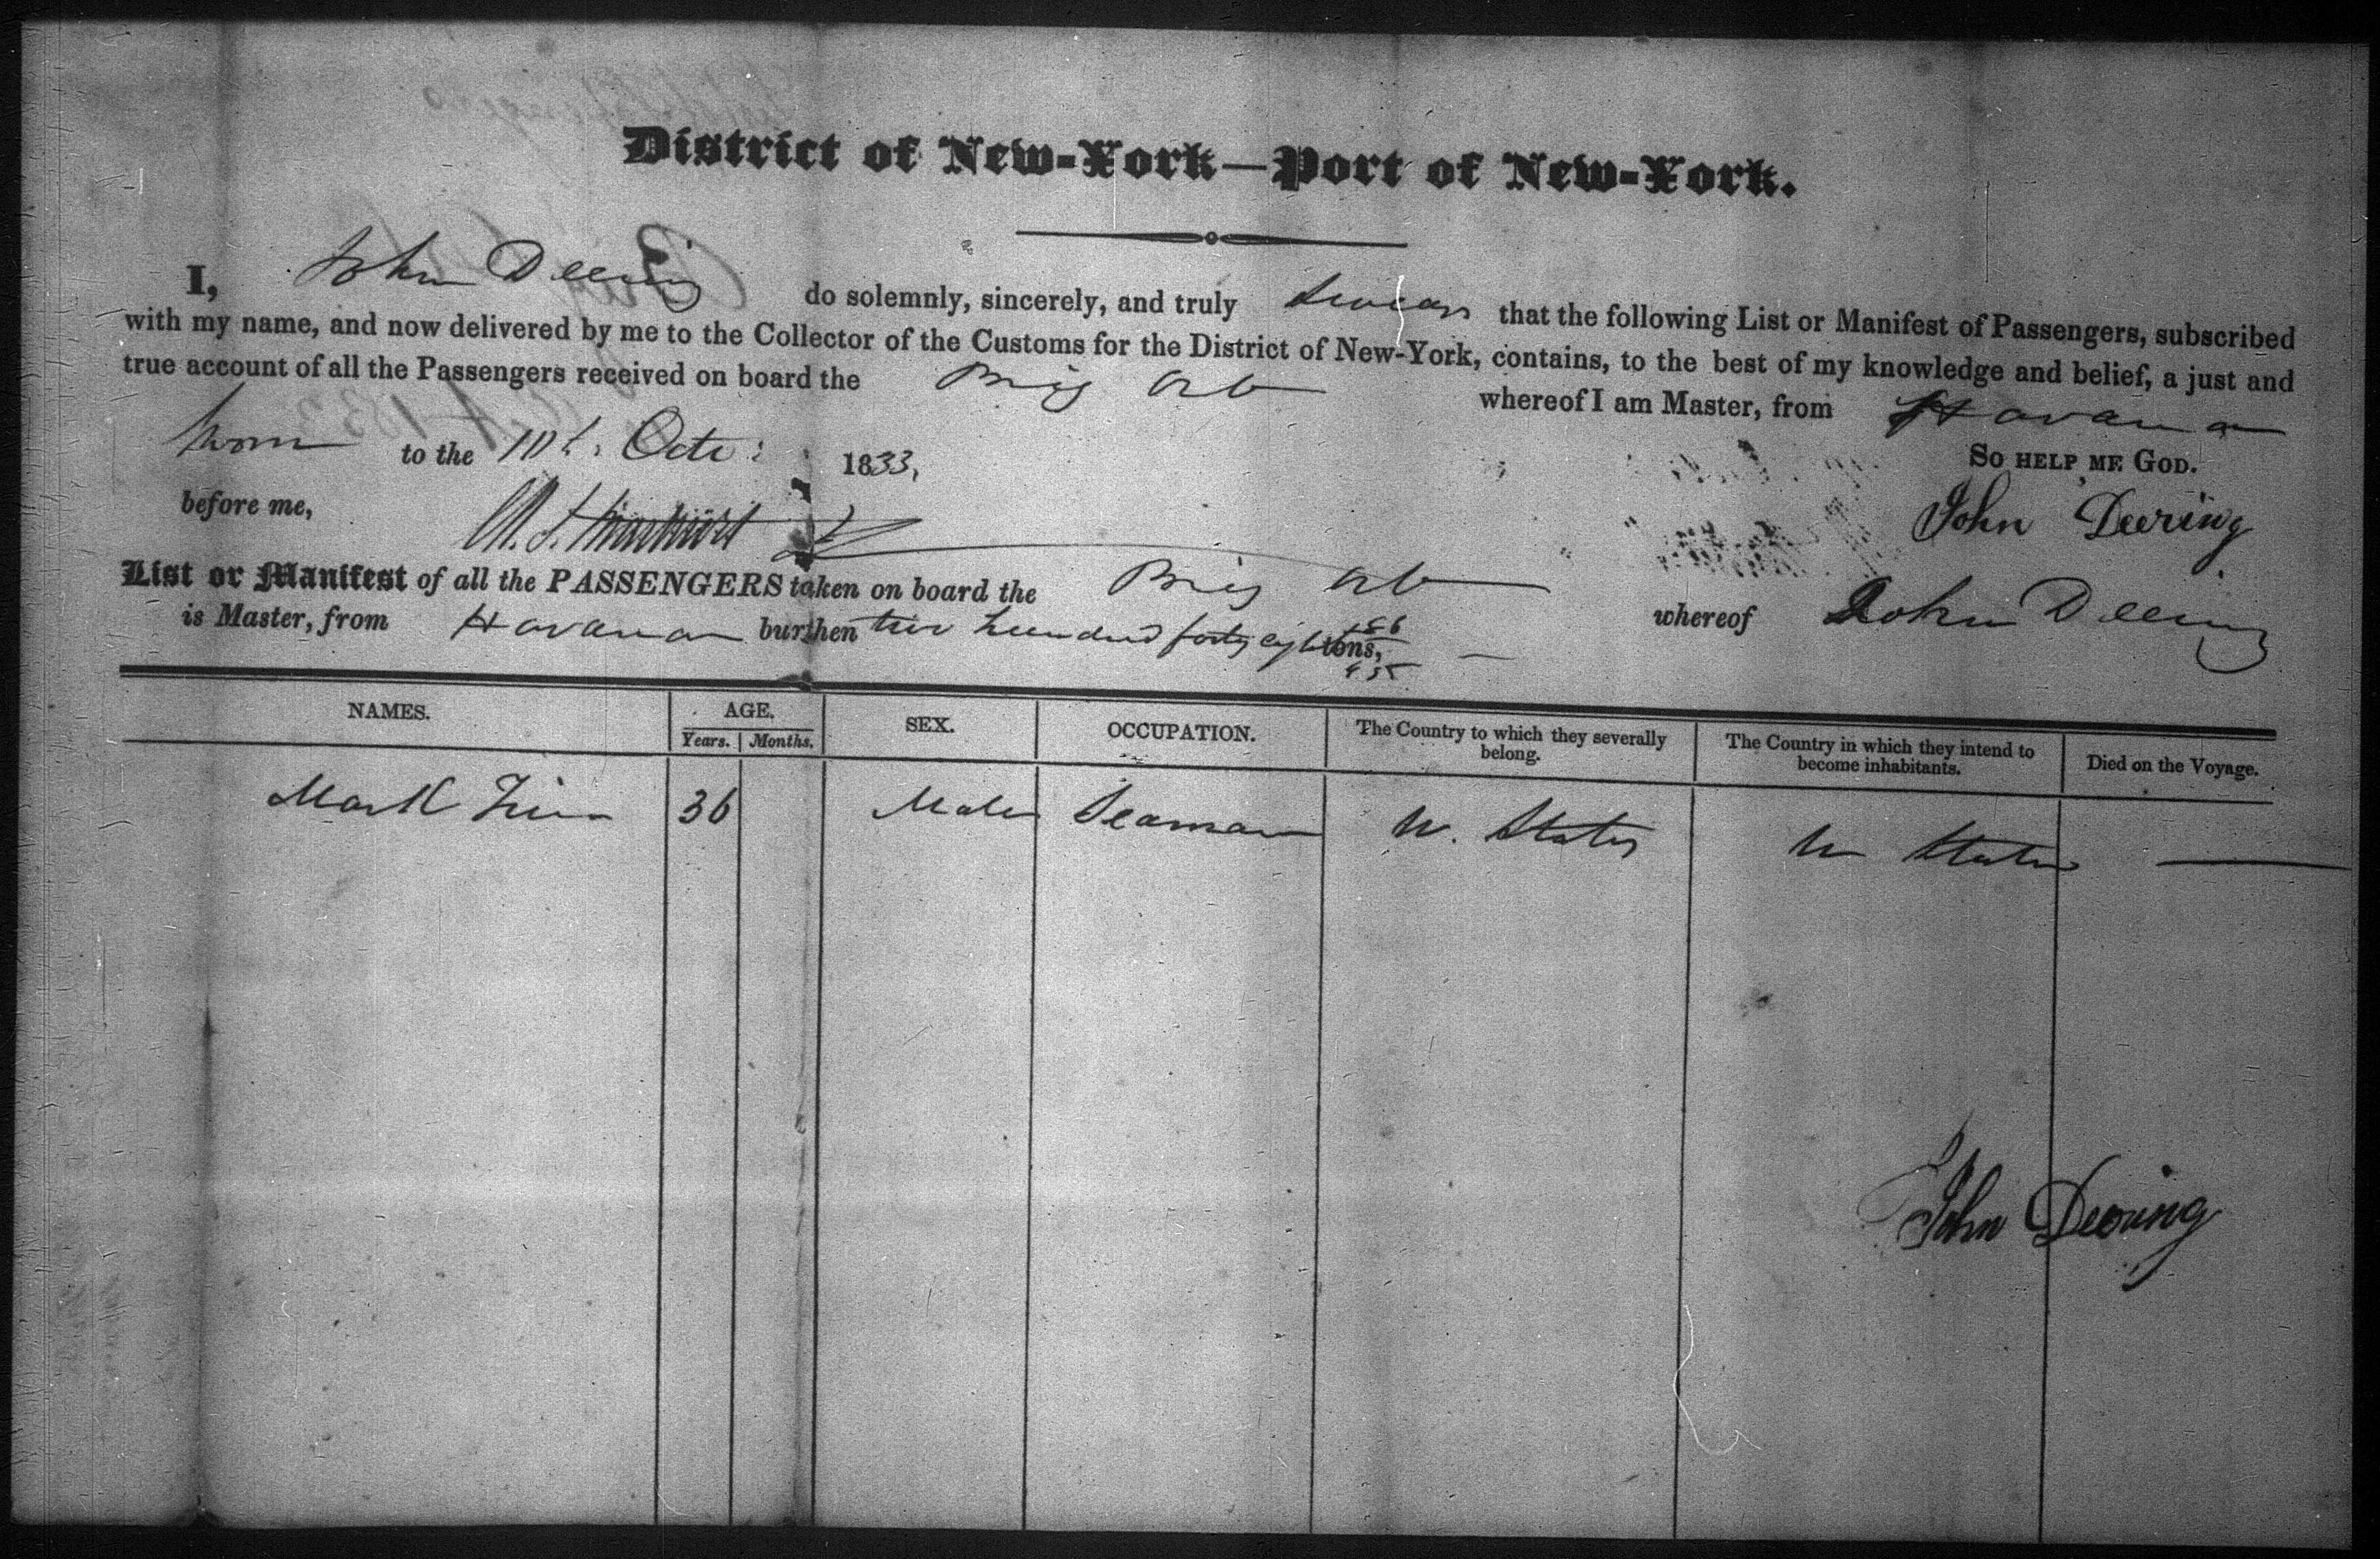 District of New-York—Port of New-York.
I, John Deering do solemnly, sincerely, and truly swear that the following List or Manifest of Passengers, subscribed
with my name, and now delivered by me to the Collector of the Customs for the District of New-York, contains, to the best of my knowledge and belief, a just and
true account of all the Passengers received on board the Brig whereof I am Master, from Havana
Sworn to the 10th. Octr: 1833, So help me God.
before me, John Deering
List or Manifest of all the PASSENGERS taken on board the Brig whereof John Deering
is Master, from Havana burthen two hundred forty eight tons,
NAMES. AGE. SEX. OCCUPATION. The Country to which they severally belong. The Country in which they intend to become inhabitants. Died on the Voyage.
Years. Months.
Mark 36 Male Seaman U. States U States —
John Deering